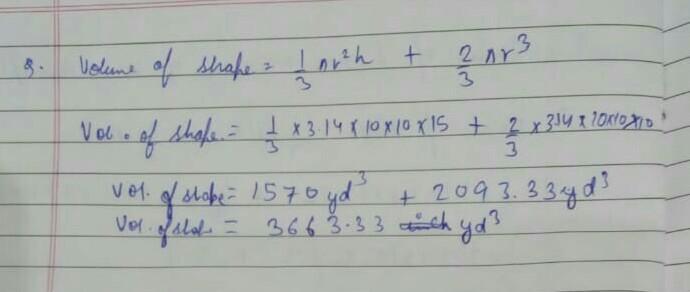 9. Volume of shape = 1/3 πr²h + 2/3 πr³
Vol. of shape = 1/3 × 3.14 × 10 × 10 × 15 + 2/3 × 3.14 × 10 × 10 × 10
Vol. of shape = 1570 yd³ + 2093.33 yd³
Vol. of shape = 3663.33 yd³